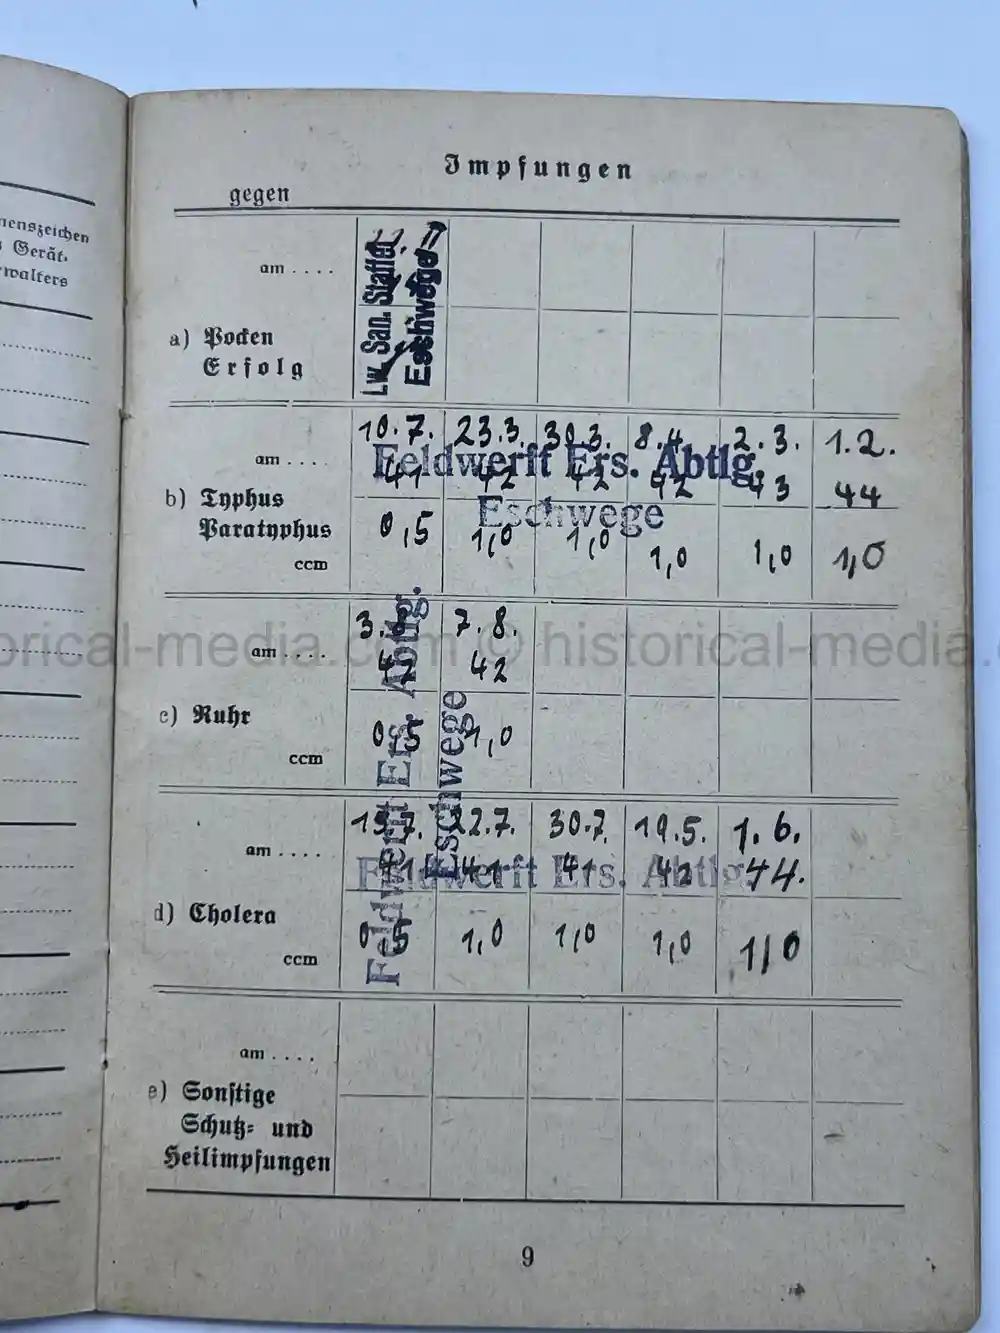 nenszeichen
Gerät-
walters
Impfungen
gegen
am ....
a) Pocken
Erfolg
Lw. San. Staffel
Eschwege
am ....
10.7. 23.3. 30.3. 8.4. 2.3. 1.2.
41 42 42 42 43 44
Feldwerft Ers. Abtlg.
Eschwege
b) Typhus
Paratyphus
ccm
0,5 1,0 1,0 1,0 1,0 1,0
am ....
3. 7.8.
42 42
c) Ruhr
ccm
0,5 1,0
Feldwerft Ers. Abtlg.
Eschwege
am ....
15.7. 22.7. 30.7. 19.5. 1.6.
41 41 41 42 44.
Feldwerft Ers. Abtlg.
d) Cholera
ccm
0,5 1,0 1,0 1,0 1,0
am ....
e) Sonstige
Schutz- und
Heilimpfungen
9
orical-media.com © historical-media.c